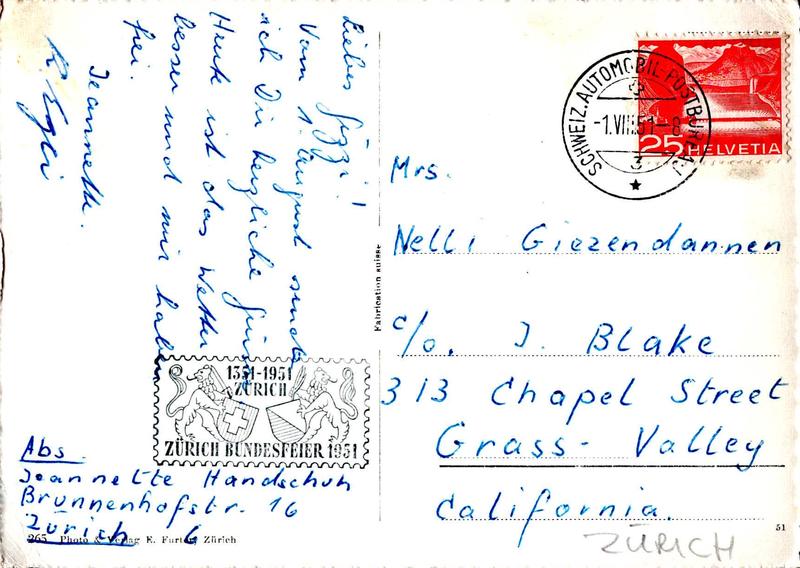 Liebes Gizzi!
Vom 1. August sende
ich Dir herzliche Grüsse
Heute ist das Wetter
besser und wir haben
frei.
Jeannette.
R. Egli
Abs.
Jeannette Handschuh
Brunnenhofstr. 16
Zürich 6
265 Photo & Verlag E. Furter, Zürich
1351-1951
ZÜRICH
ZÜRICH BUNDESFEIER 1951
Fabrication suisse
SCHWEIZ. AUTOMOBIL-POSTBUREAU
-1.VIII.51-8
3
25 HELVETIA
Mrs.
Nelli Giezendannen
c/o. J. Blake
313 Chapel Street
Grass-Valley
California.
51
ZÜRICH